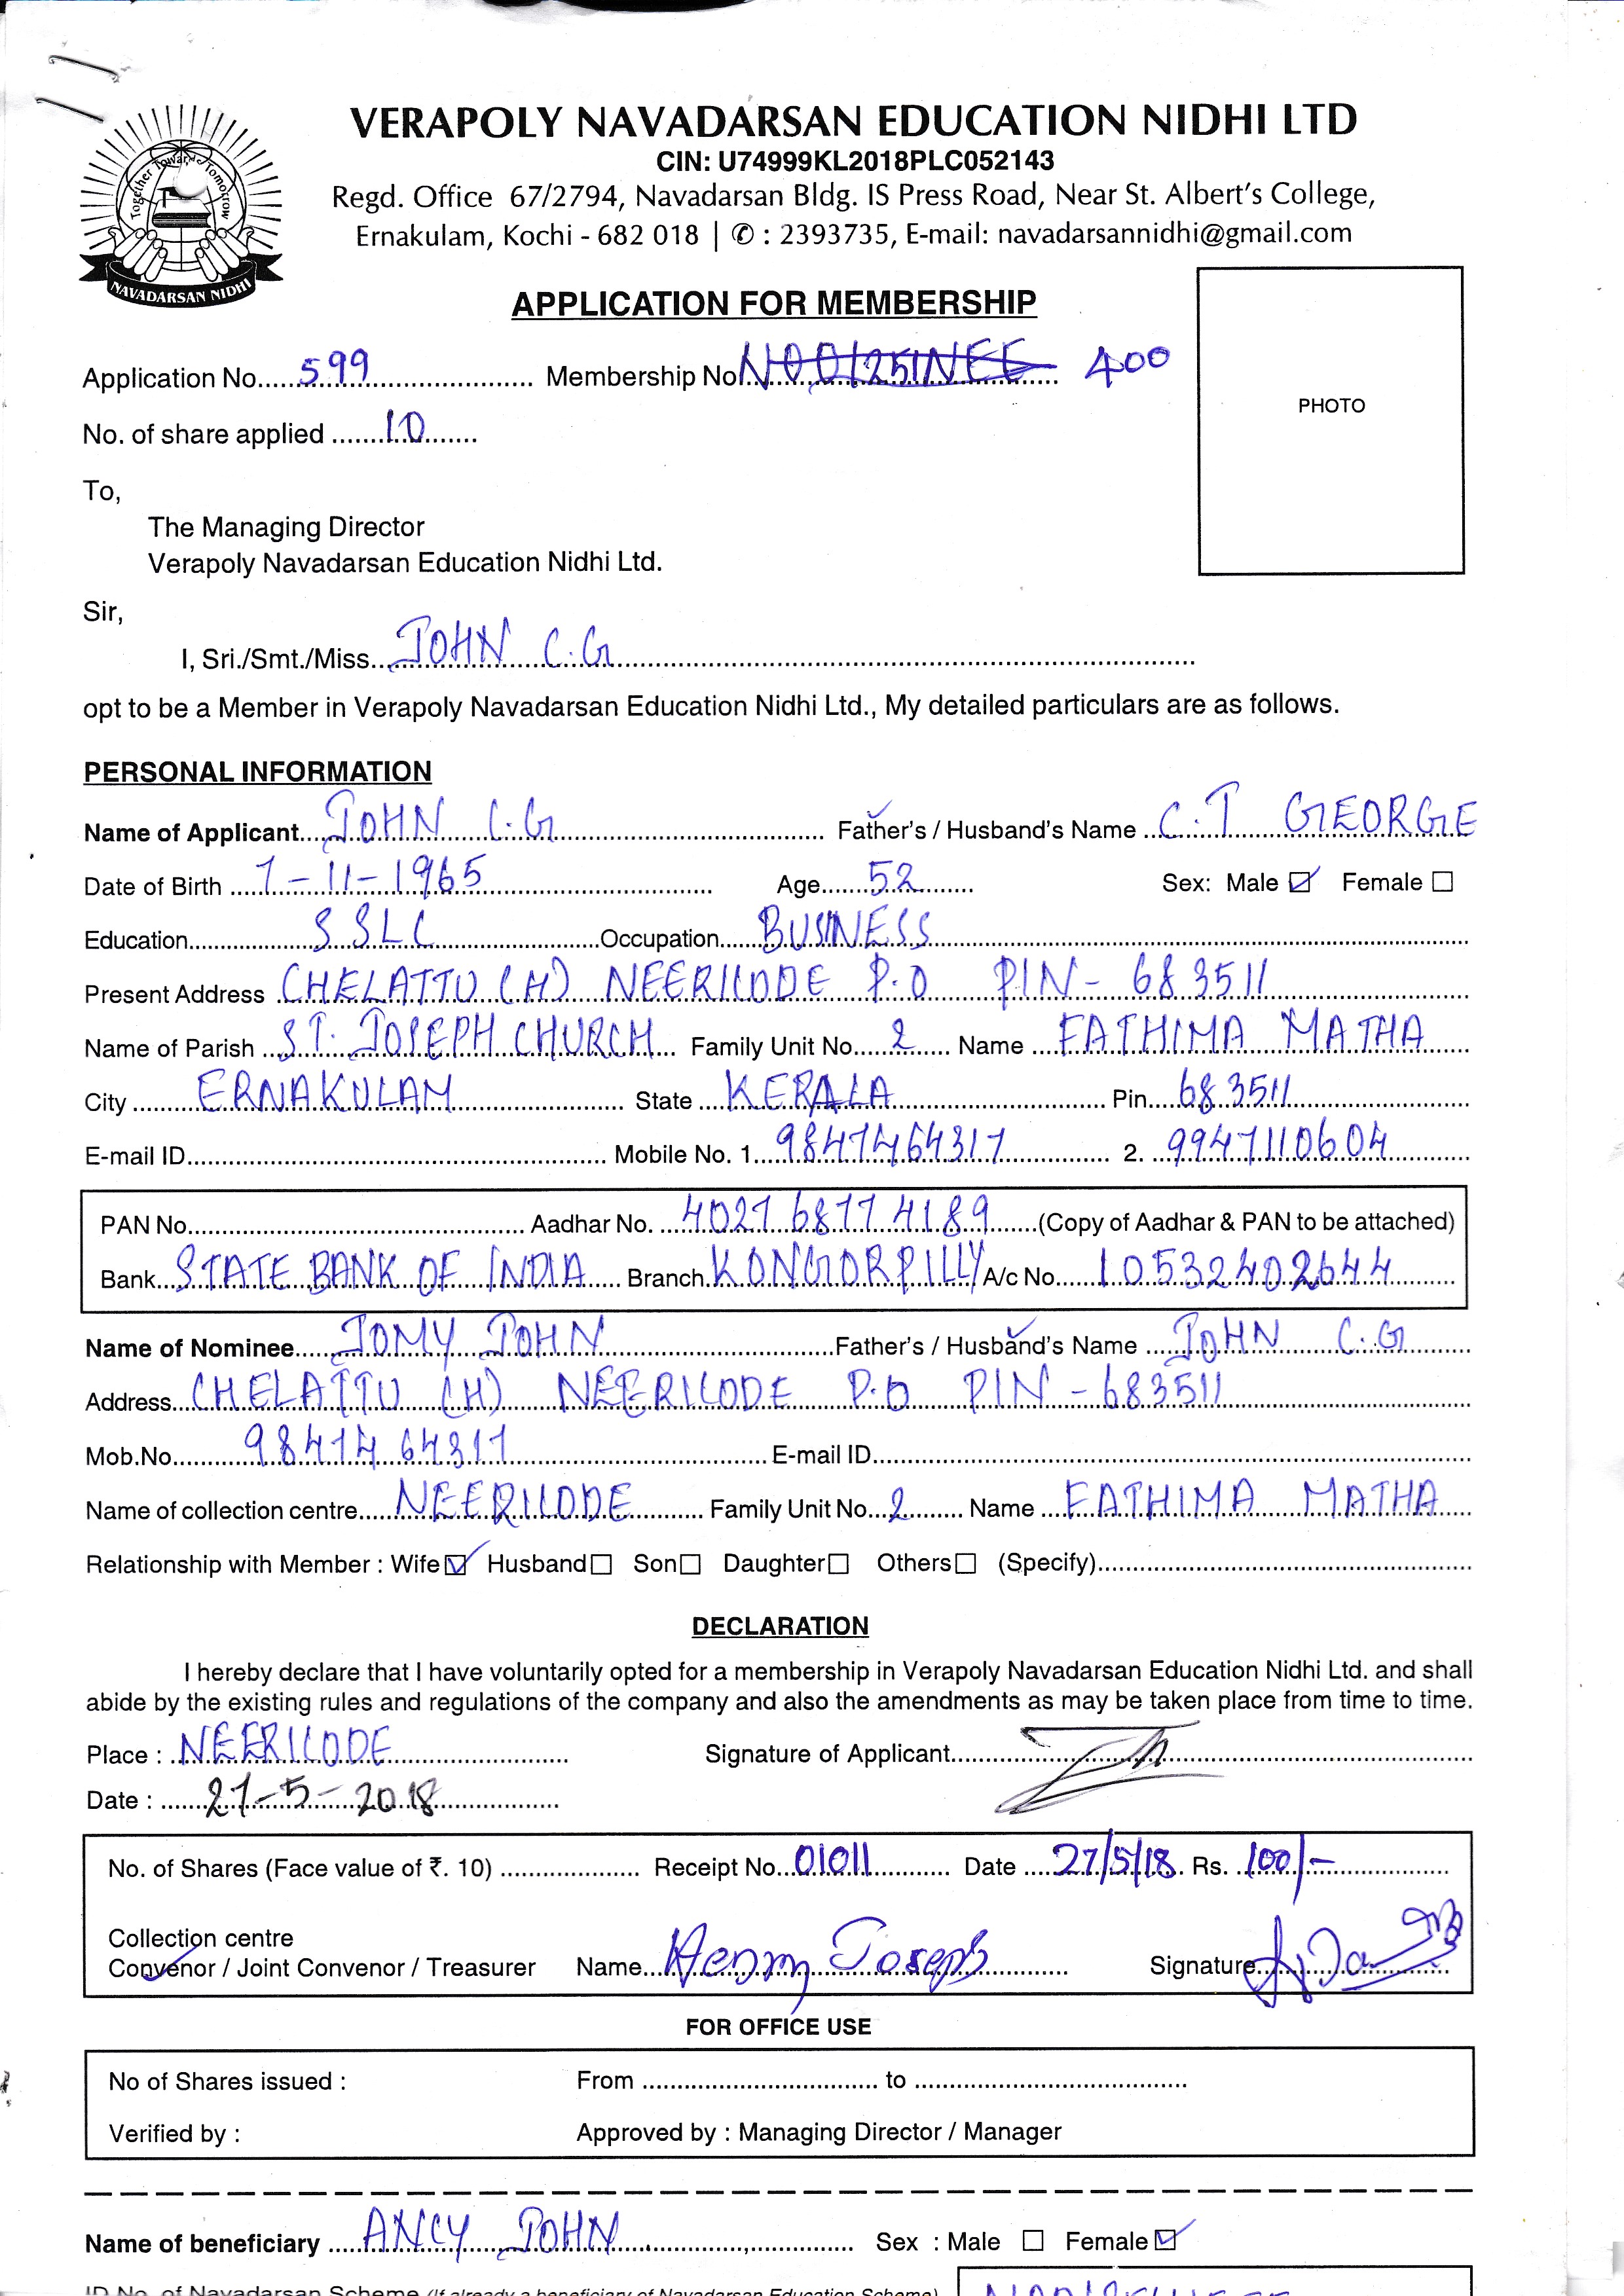 Together Towards Tomorrow
NAVADARSAN NIDHI
VERAPOLY NAVADARSAN EDUCATION NIDHI LTD
CIN: U74999KL2018PLC052143
Regd. Office 67/2794, Navadarsan Bldg. IS Press Road, Near St. Albert's College,
Ernakulam, Kochi - 682 018 | ✆ : 2393735, E-mail: navadarsannidhi@gmail.com
APPLICATION FOR MEMBERSHIP
PHOTO
Application No. 599 Membership No. 400
No. of share applied 10
To,
The Managing Director
Verapoly Navadarsan Education Nidhi Ltd.
Sir,
I, Sri./Smt./Miss. JOHN C.G
opt to be a Member in Verapoly Navadarsan Education Nidhi Ltd., My detailed particulars are as follows.
PERSONAL INFORMATION
Name of Applicant JOHN C.G Father's / Husband's Name C.T GEORGE
Date of Birth 7-11-1965 Age 52 Sex: Male ☑ Female ☐
Education SSLC Occupation BUSINESS
Present Address CHELATTU (H) NEERICODE P.O PIN - 683511
Name of Parish ST. JOSEPH CHURCH Family Unit No. 2 Name FATHIMA MATHA
City ERNAKULAM State KERALA Pin 683511
E-mail ID Mobile No. 1. 9847464317 2. 9947110604
PAN No. Aadhar No. 4027 6877 4189 (Copy of Aadhar & PAN to be attached)
Bank STATE BANK OF INDIA Branch KONGORPILLY A/c No. 10532402644
Name of Nominee JOMY JOHN Father's / Husband's Name JOHN C.G
Address CHELATTU (H) NEERICODE P.O PIN - 683511
Mob.No. 9847464317 E-mail ID
Name of collection centre NEERICODE Family Unit No. 2 Name FATHIMA MATHA
Relationship with Member : Wife ☑ Husband ☐ Son ☐ Daughter ☐ Others ☐ (Specify)
DECLARATION
I hereby declare that I have voluntarily opted for a membership in Verapoly Navadarsan Education Nidhi Ltd. and shall
abide by the existing rules and regulations of the company and also the amendments as may be taken place from time to time.
Place : NEERICODE Signature of Applicant
Date : 27-5-2018
No. of Shares (Face value of ₹. 10) Receipt No. 01011 Date 27/5/18 Rs. 100/-
Collection centre
Convenor / Joint Convenor / Treasurer Name Henry Joseph Signature
FOR OFFICE USE
No of Shares issued : From to
Verified by : Approved by : Managing Director / Manager
Name of beneficiary ANCY JOHN Sex : Male ☐ Female ☑
ID No. of Navadarsan Scheme (If already a beneficiary of Navadarsan Education Scheme)